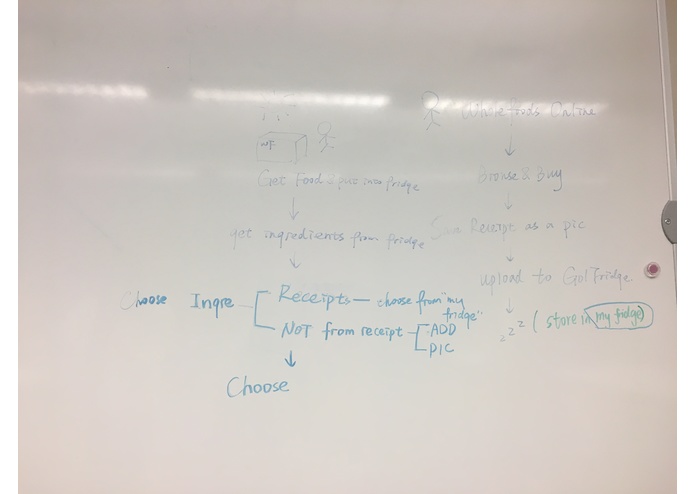 WF
Get Food & put into fridge
get ingredients from fridge
Choose Ingre
Receipts — choose from "my fridge"
NOT from receipt
ADD
PIC
Choose
Wholefoods Online
Browse & Buy
Receipt as a pic
upload to GolFridge
zzz (store in my fridge)